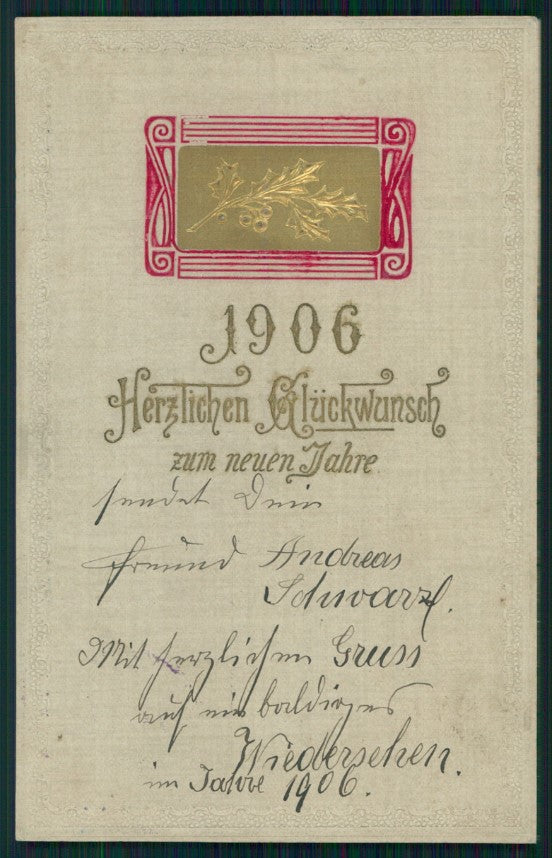 1906
Herzlichen Glückwunsch
zum neuen Jahre.
sendet Dein
Freund Andreas
Schwarzl.
Mit herzlichem Gruss
auf ein baldiges
Wiedersehen.
im Jahre 1906.